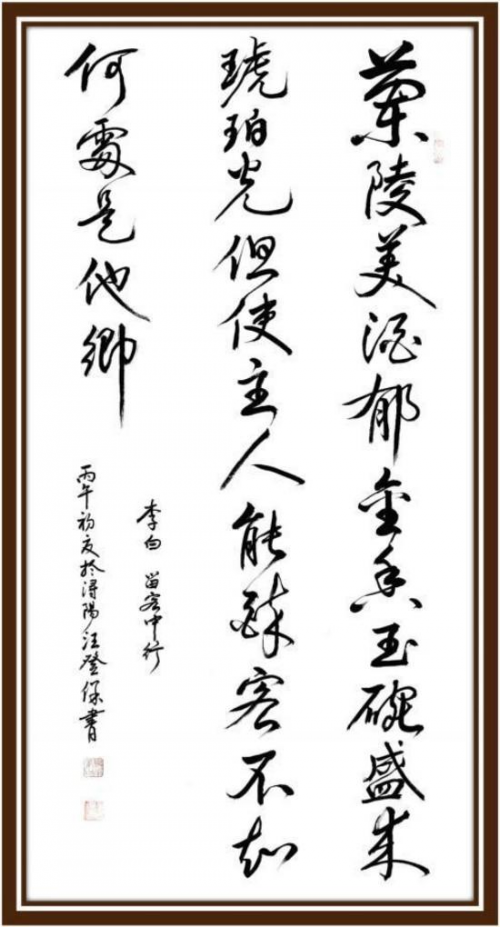 蘭陵美酒郁金香玉碗盛来
琥珀光但使主人能醉客不知
何處是他鄉
李白 留客中行
丙午初夏於潯陽汪登保書